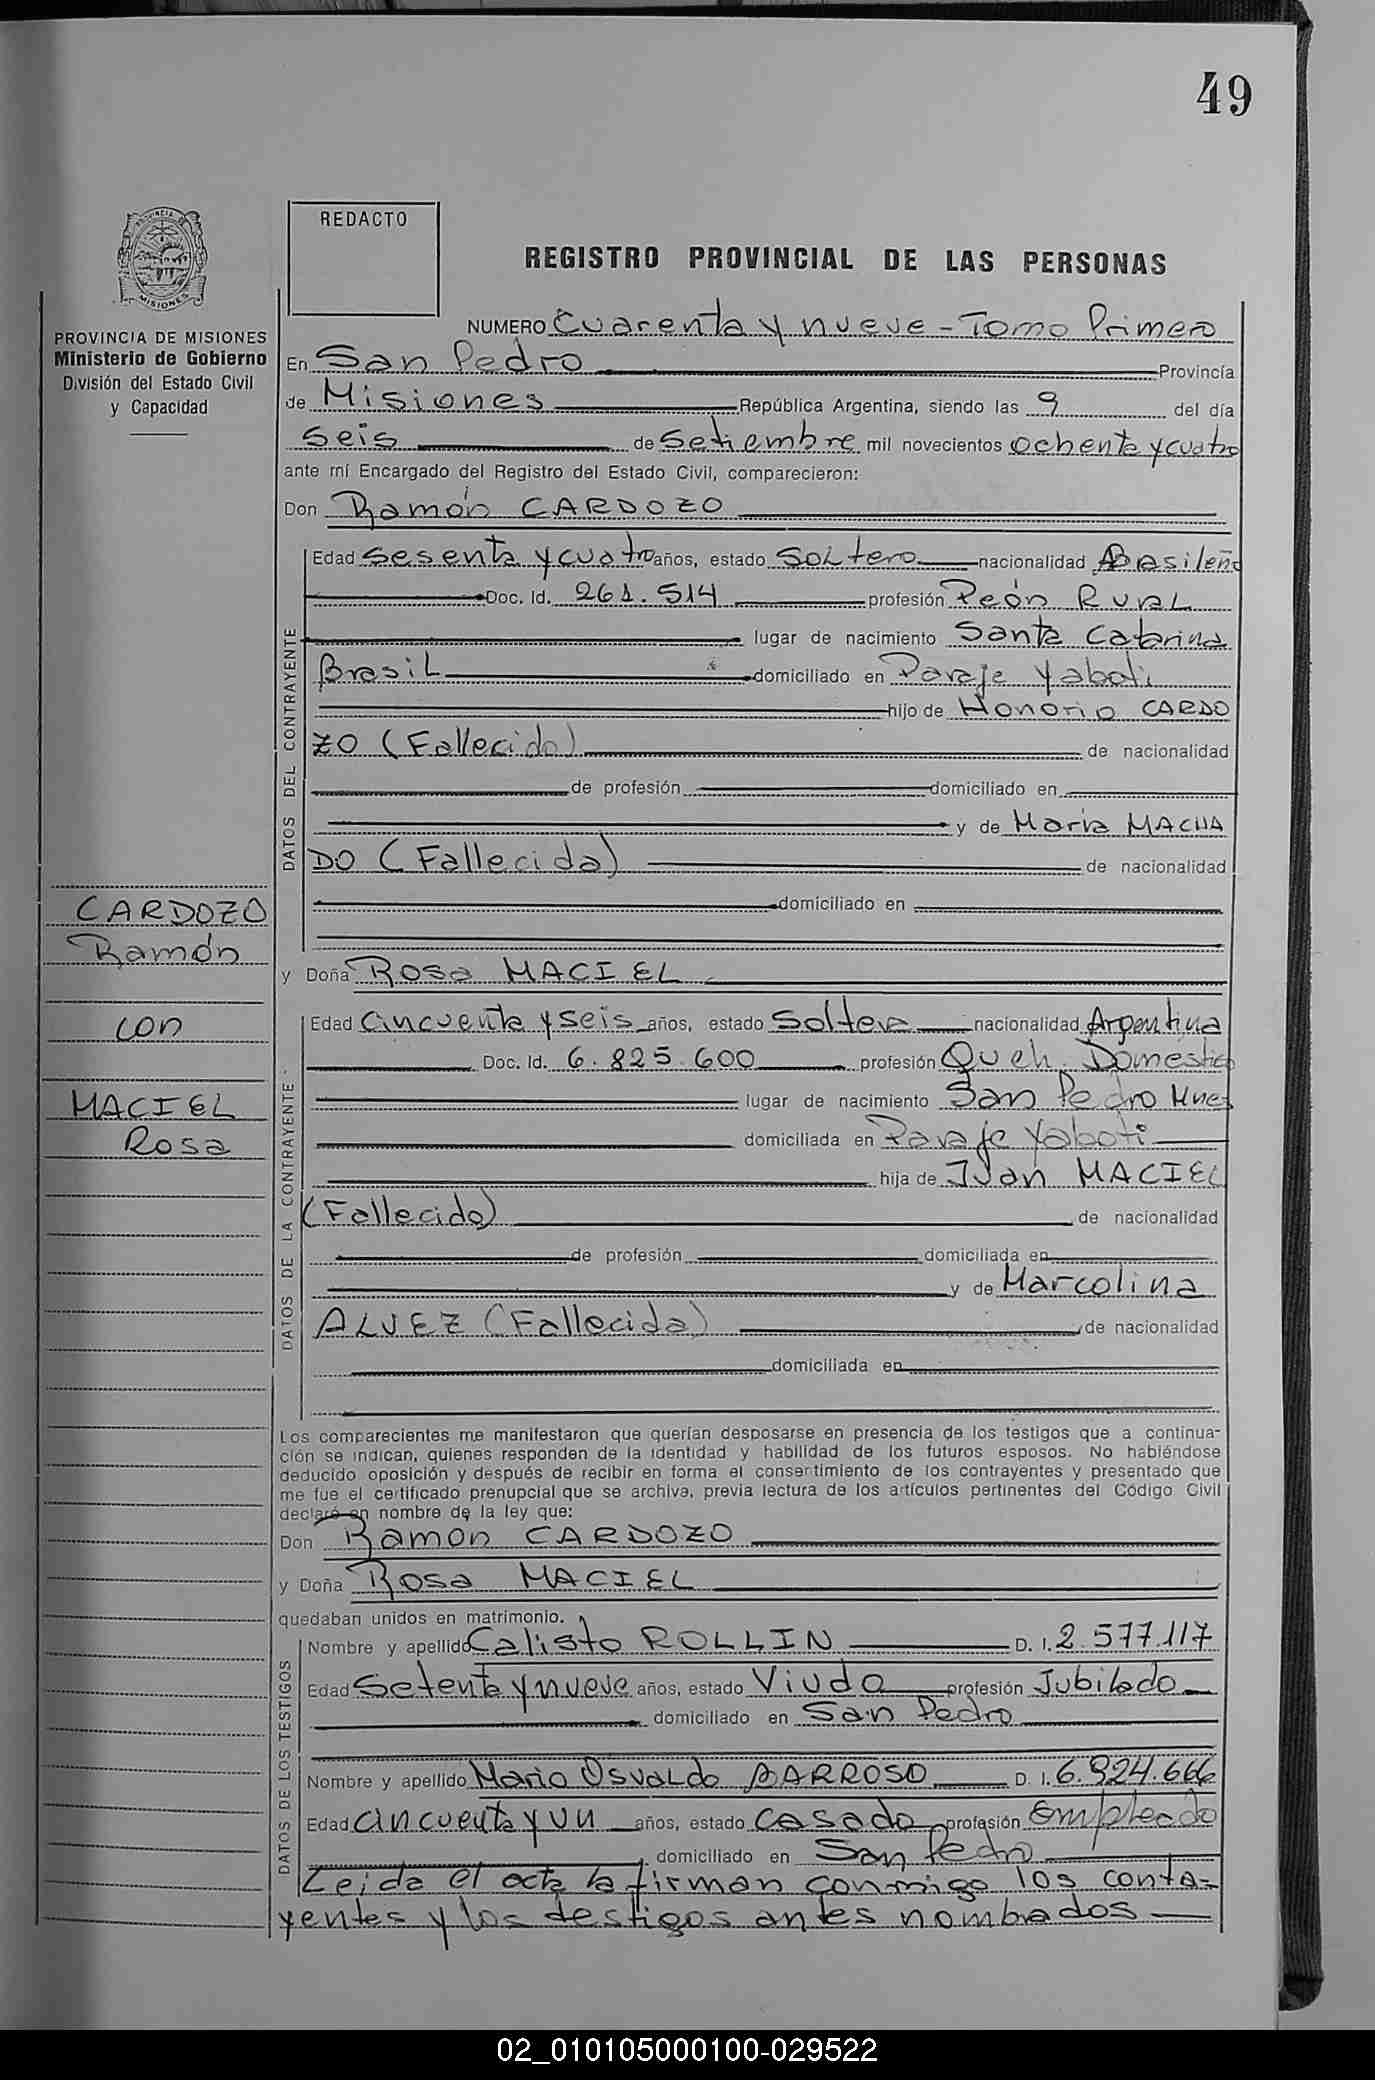 49
REDACTO
REGISTRO PROVINCIAL DE LAS PERSONAS
MISIONES
PROVINCIA DE MISIONES
Ministerio de Gobierno
División del Estado Civil
y Capacidad
NUMERO Cuarenta y nueve - Tomo Primero
En San Pedro Provincia
de Misiones República Argentina, siendo las 9 del día
seis de Setiembre mil novecientos ochenta y cuatro
ante mí Encargado del Registro del Estado Civil, comparecieron:
Don Ramón CARDOZO
DATOS DEL CONTRAYENTE
Edad sesenta y cuatro años, estado Soltero nacionalidad Brasileño
Doc. Id. 261.514 profesión Peón Rural
lugar de nacimiento Santa Catarina
Brasil domiciliado en Paraje Yaboti
hijo de Honorio CARDO
ZO (Fallecido) de nacionalidad
de profesión domiciliado en
y de María MACHA
DO (Fallecida) de nacionalidad
domiciliado en
CARDOZO
Ramón
con
MACIEL
Rosa
y Doña Rosa MACIEL
DATOS DE LA CONTRAYENTE
Edad Cincuenta y seis años, estado Soltera nacionalidad Argentina
Doc. Id. 6.825.600 profesión Queh. Domestic
lugar de nacimiento San Pedro Mnes
domiciliada en Paraje Yaboti
hija de Juan MACIEL
(Fallecido) de nacionalidad
de profesión domiciliada en
y de Marcolina
ALVEZ (Fallecida) de nacionalidad
domiciliada en
Los comparecientes me manifestaron que querían desposarse en presencia de los testigos que a continua-
ción se indican, quienes responden de la identidad y habilidad de los futuros esposos. No habiéndose
deducido oposición y después de recibir en forma el consentimiento de los contrayentes y presentado que
me fue el certificado prenupcial que se archiva, previa lectura de los artículos pertinentes del Código Civil
declaré en nombre de la ley que:
Don Ramon CARDOZO
y Doña Rosa MACIEL
quedaban unidos en matrimonio.
DATOS DE LOS TESTIGOS
Nombre y apellido Calisto ROLLIN D. I. 2.577.117
Edad Setenta y nueve años, estado Viudo profesión Jubilado
domiciliado en San Pedro
Nombre y apellido Mario Osvaldo BARROSO D. I. 6.924.666
Edad cincuenta y un años, estado casado profesión Empleado
domiciliado en San Pedro
Leida el acta la firman conmigo los contra-
yentes y los testigos antes nombrados
02_010105000100-029522